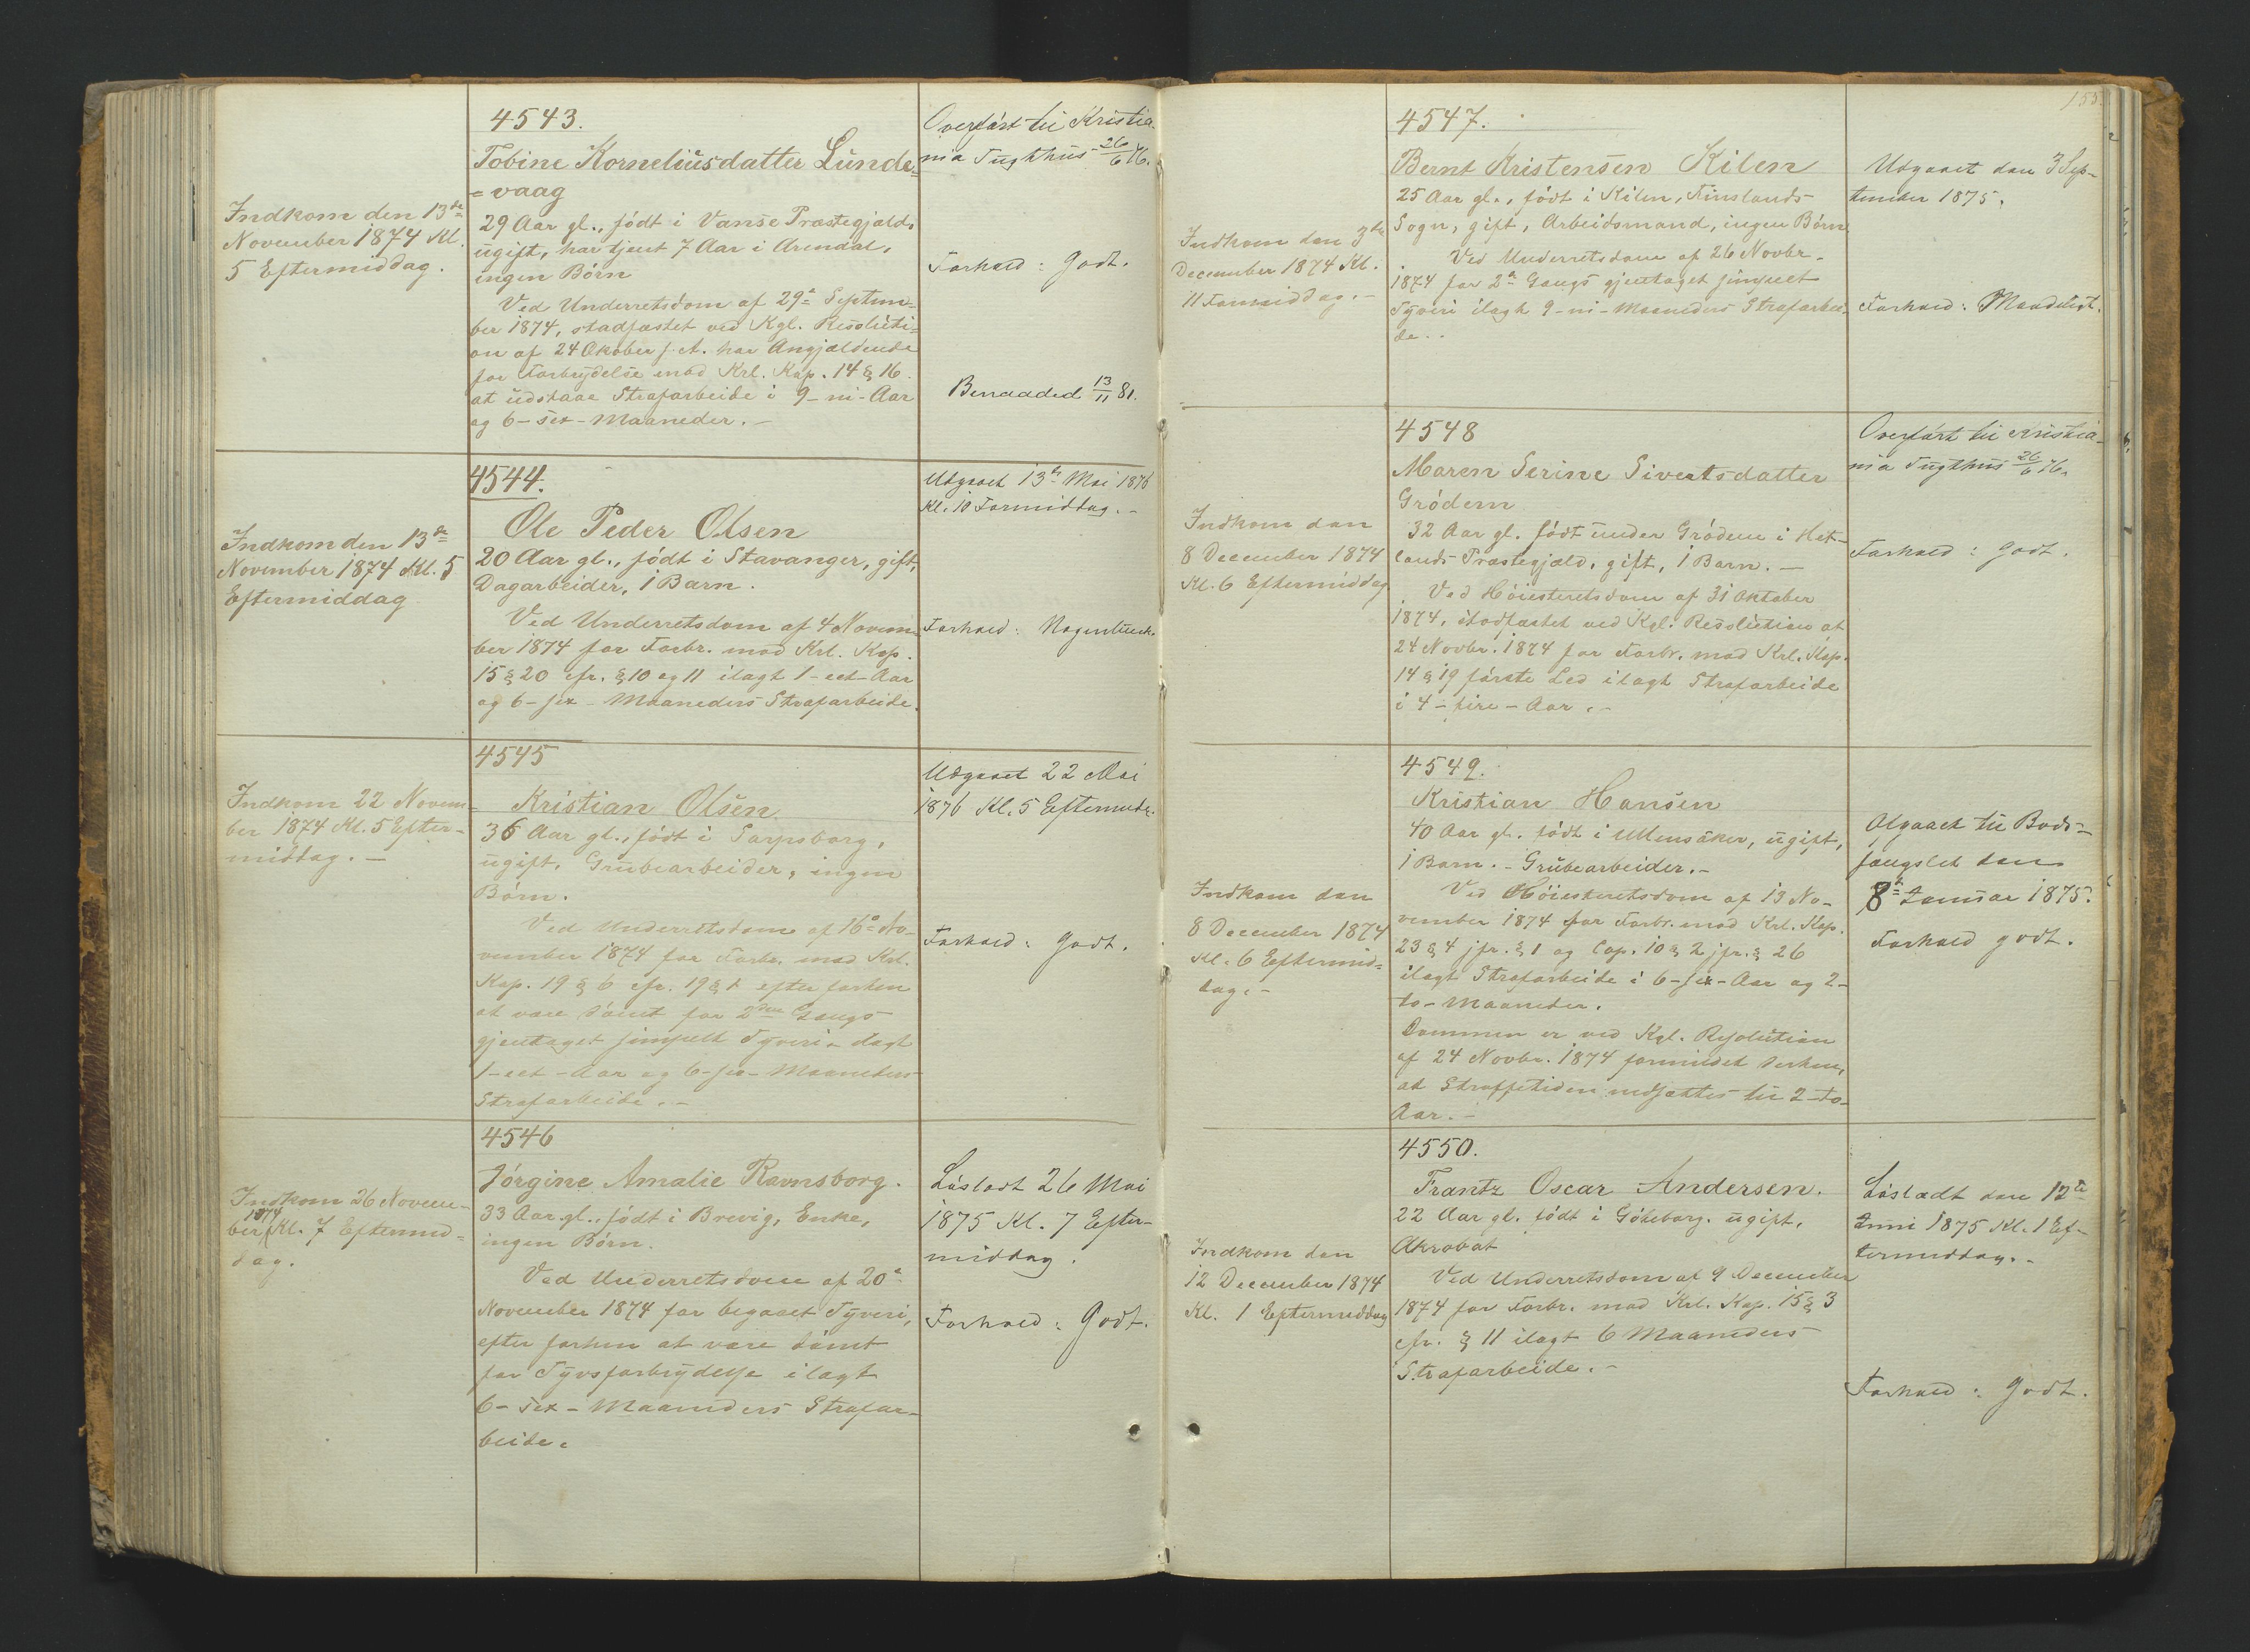 4543.
Tobine Korneliusdatter Lunde-
=vaag
Indkom den 13de
November 1874 Kl.
5 Eftermiddag.
29 Aar gl., födt i Vanse Præstegjæld,
ugift, har tjent 7 Aar i Arendal,
ingen Börn
Ved Underretsdom af 29de Septem-
ber 1874, stadfæstet ved Kgl. Resoluti-
on af 24 Okober s. A. har Angjældende
for Forbrydelse mod Krl. Kap. 14 § 16.
at udstaae Strafarbeide i 9-ni-Aar
og 6-sex-Maaneder.-
Overfört til Kristia-
nia Tugthus 26/6 76.
Forhold: Godt.
Benaaded 13/11 81.
4544.
Ole Peder Olsen
Indkom den 13de
November 1874 Kl. 5
Eftermiddag
20 Aar gl., födt i Stavanger, gift,
Dagarbeider, 1 Barn.
Ved Underretsdom af 4 Novem-
ber 1874 for Forbr. mod Krl. Kap.
15 § 20 cfr. § 10 og 11 ilagt 1-eet-Aar
og 6-sex-Maaneders Strafarbeide.
Udgaaet 13de Mai 1876
Kl. 10 Formiddag.-
Forhold:
4545
Kristian Olsen
Indkom 22 Novem-
ber 1874 Kl. 5 Efter-
middag.-
36 Aar gl., födt i Sarpsborg,
ugift, Grubearbeider, ingen
Börn.
Ved Underretsdom af 16de No-
vember 1874 for Forbr. mod Krl.
Kap. 19 § 6 cfr. 19 § 1 efter forhen
at være dömt for 2den Gangs
gjentaget simpelt Tyveri ilagt
1-eet-Aar og 6-sex-Maaneders
Strafarbeide.-
Udgaaet 22 Mai
1876 Kl. 5 Eftermidd.
Forhold: Godt.
4546
Jörgine Amalie Ravnsborg.
Indkom 26 Novem-
ber 1874 Kl. 7 Eftermid-
dag.
33 Aar gl., födt i Brevig, Enke,
ingen Börn.
Ved Underretsdom af 20de
November 1874 for begaaet Tyveri,
efter forhen at være dömt
for Tyvsforbrydelse ilagt
6-sex-Maaneders Strafar-
beide.
Lösladt 26 Mai
1875 Kl. 7 Efter-
middag.
Forhold: Godt.
155.
4547.
Bernt Kristensen Kilen
Indkom den 3de
December 1874 Kl.
11 Formiddag.-
25 Aar gl., födt i Kilen, Finslands
Sogn, gift, Arbeidsmand, ingen Börn
Ved Underretsdom af 26 Novbr.
1874 for 2de Gangs gjentaget simpelt
Tyveri ilagt 9-ni-Maaneders Strafarbei-
de.-
Udgaaet den 3 Sep-
tember 1875.
Forhold: Maadeligt.
4548
Maren Serine Sivertsdatter
Grödem
Indkom den
8 December 1874
Kl. 6 Eftermiddag
32 Aar gl. födt under Grödem i Het-
lands Præstegjæld, gift, 1 Barn.-
Ved Höiesteretsdom af 31 Oktober
1874, stadfæstet ved Kgl. Resolution af
24 Novbr. 1874 for Forbr. mod Krl. Kap.
14 § 19 förste Led ilagt Strafarbeide
i 4-fire-Aar.-
Overfört til Kristia-
nia Tugthus 26/6 76.
Forhold: godt.
4549.
Kristian Hansen
Indkom den
8 December 1874
Kl. 6 Eftermid-
dag.-
40 Aar gl. födt i Ullensaker, ugift,
1 Barn.- Grubearbeider.-
Ved Höiesteretsdom af 13 No-
vember 1874 for Forbr. mod Krl. Kap.
23 § 4 jfr. § 1 og Cap. 10 § 2 jfr. § 26
ilagt Strafarbeide i 6-sex-Aar og 2-
to-Maaneder.
Dommen er ved Kgl. Resolution
af 24 Novbr. 1874 formildet derhen,
at Straffetiden nedsættes til 2-to-
Aar.-
Afgaaet til Bods-
fængslet den
8de Januar 1875.
Forhold godt.
4550.
Frantz Oscar Andersen.
Indkom den
12 December 1874
Kl. 1 Eftermiddag
22 Aar gl. födt i Göteborg. ugift,
Akrobat
Ved Underretsdom af 9 December
1874 for Forbr. mod Krl. Kap. 15 § 3
cfr. § 11 ilagt 6 Maaneders
Strafarbeide.-
Lösladt den 12te
Juni 1875 Kl. 1 Ef-
termiddag.-
Forhold: Godt.